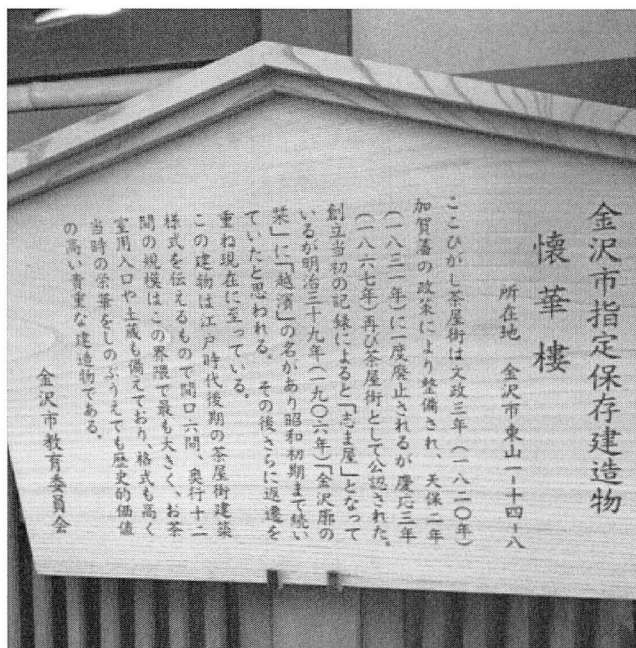 金沢市指定保存建造物
懐華樓
所在地　金沢市東山一-十四-八
ここひがし茶屋街は文政三年（一八二〇年）
加賀藩の政策により整備され、天保二年
（一八三一年）に一度廃止されるが慶応三年
（一八六七年）再び茶屋街として公認された。
創立当初の記録によると「志ま屋」となって
いるが明治三十九年（一九〇六年）「金沢廓の
栞」に「越濱」の名があり昭和初期まで続い
ていたと思われる。その後さらに返遷を
重ね現在に至っている。
この建物は江戸時代後期の茶屋街建築
様式を伝えるもので間口六間、奥行十二
間の規模はこの界隈で最も大きく、お茶
室用入口や土蔵も備えており、格式も高く
当時の栄華をしのぶうえても歴史的価値
の高い貴重な建造物である。
金沢市教育委員会